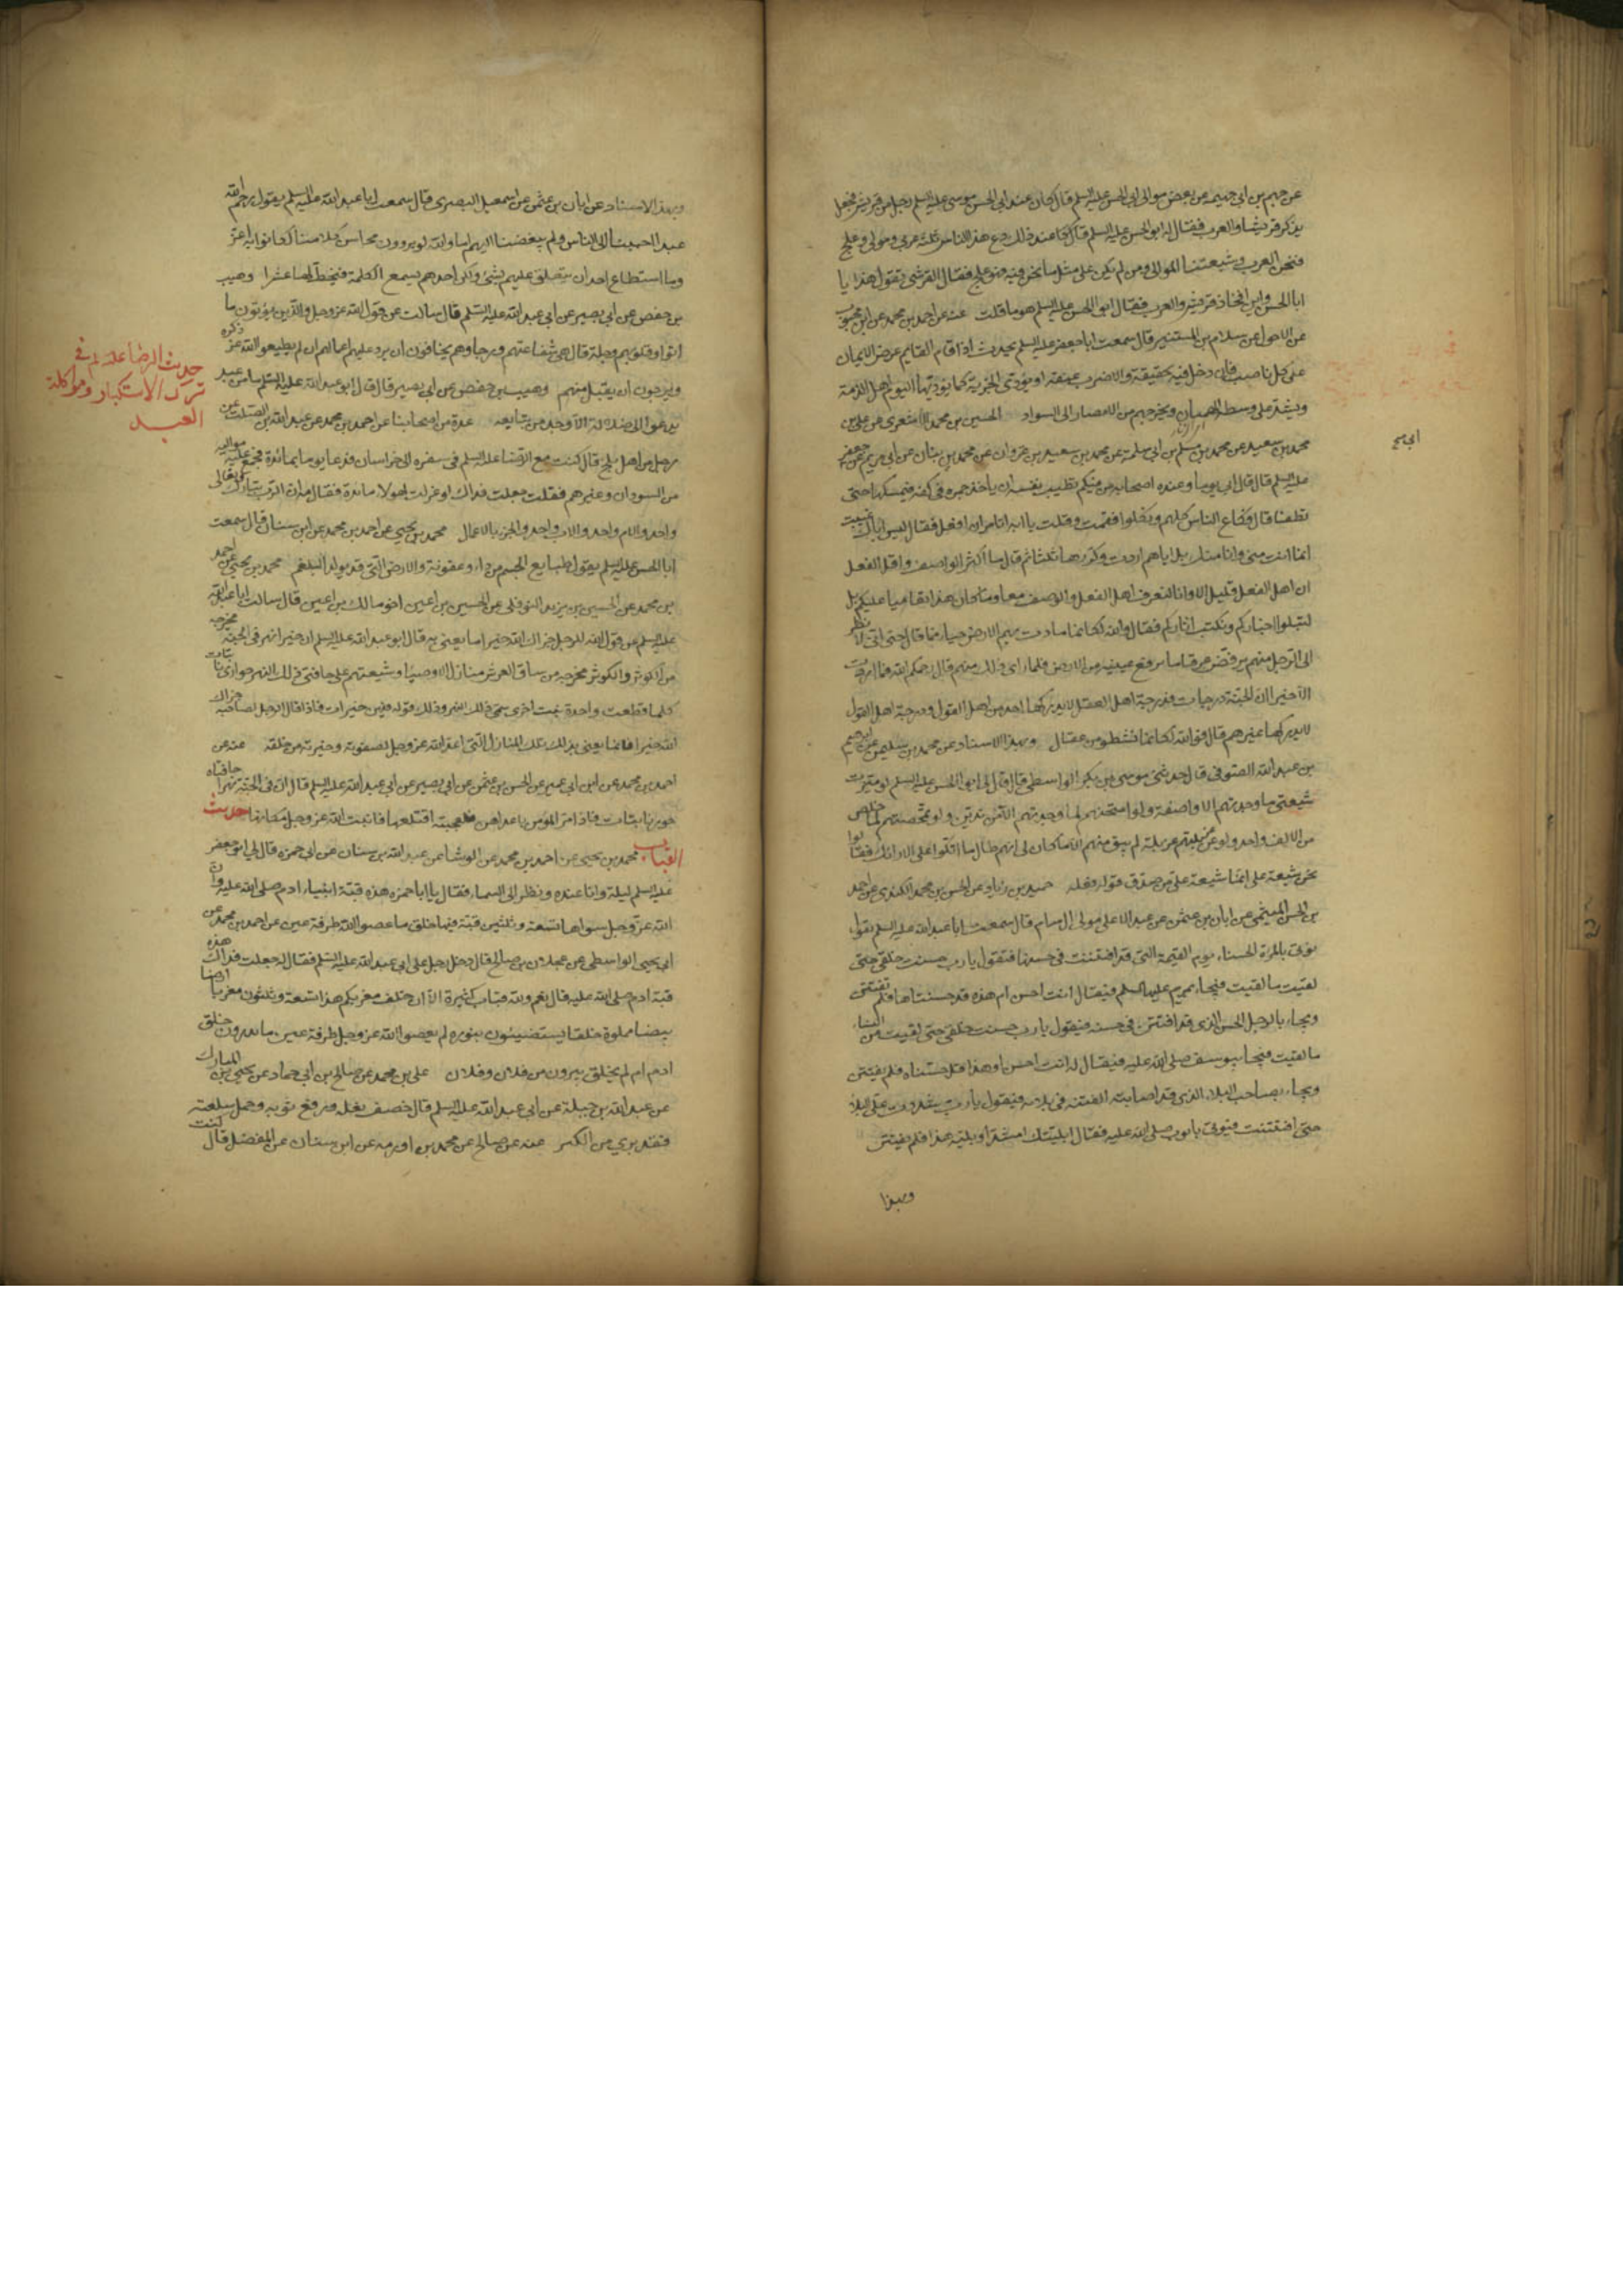 عن جهم بن ابي جهيمه عن بعض موالي ابي الحسن عليه السلم قال كان عند ابي الحسن موسى عليه السلم رجل من قريش فجعل
يذكر قريشا والعرب فقال له ابو الحسن عليه السلم عند ذلك دع هذا الناس ثلثة عربي ومولى وعلج
فنحن العرب وشيعتنا الموالي ومن لم يكن على مثل ما نحن فيه فهو علج فقال القرشي تقول هذا يا
ابا الحسن فاين افخاذ قريش والعرب فقال ابو الحسن عليه السلم هو ما قلت عنه عن احمد بن محمد عن ابن محبوب
عن الاحول عن سلام بن المستنير قال سمعت ابا جعفر عليه السلم يحدث اذا قام القايم عرض الايمان
على كل ناصب فان دخل فيه بحقيقة والا ضرب عنقه او يؤدي الجزية كما يؤديها اليوم اهل الذمة
ويشد على وسطه الهميان ويخرجهم من الامصار الى السواد الحسين بن محمد الاشعري عن علي بن
محمد بن سعيد عن محمد بن مسلم بن ابي سلمة عن محمد بن سعيد بن غزوان عن محمد بن بنان عن ابي مريم عن ابي جعفر
عليه السلم قال قال ابي يوما وعنده اصحابه من منكم تطيب نفسه ان ياخذ جمرة في كفه فيمسكها حتى
تطفا قال فكاع الناس كلهم ونكلوا فقمت وقلت يا ابه اتامر ان افعل فقال ليس اياك عنيت
انما انت مني وانا منك بل اياهم اردت وكررها ثلثا ثم قال ما اكثر الوصف واقل الفعل
ان اهل الفعل قليل الا وانا لنعرف اهل الفعل والوصف معا وما كان هذا تعاميا عليكم بل
لنبلوا اخباركم ونكتب اثاركم فقال والله لكانما مادت بهم الارض حياء مما قال حتى اني لانظر
الى الرجل منهم يرفض عرقا ما يرفع عينيه من الارض فلما راى ذلك منهم قال رحمكم الله فما اردت
الا خيرا ان الجنة درجات فدرجة اهل الفعل لا يدركها احد من اهل القول ودرجة اهل القول
لا يدركها غيرهم قال فوالله لكانما نشطوا من عقال وبهذا الاسناد عن محمد بن سليمن عن ابرهيم
بن عبد الله الصوفي قال حدثني موسى بن بكر الواسطي قال قال لي ابو الحسن عليه السلم لو ميزت
شيعتي ما وجدتهم الا واصفة ولو امتحنتهم لما وجدتهم الا مرتدين ولو تمحصتهم لما خلص
من الالف واحد ولو غربلتهم غربلة لم يبق منهم الا ما كان لي انهم طال ما اتكوا على الارائك فقالوا
نحن شيعة علي انما شيعة علي من صدق قوله فعله حميد بن زياد عن الحسن بن محمد الكندي عن احمد
بن الحسن الميثمي عن ابان بن عثمن عن عبد الاعلى مولى ال سام قال سمعت ابا عبد الله عليه السلم يقول
يؤتى بالمراة الحسناء يوم القيمة التي قد افتتنت في حسنها فتقول يا رب حسنت خلقي حتى
لقيت ما لقيت فيجاء بمريم عليها السلم فيقال انت احسن ام هذه قد حسنتاها فلم تفتتن
ويجاء بالرجل الحسن الذي قد افتتن في حسنه فيقول يا رب حسنت خلقي حتى لقيت من النساء
ما لقيت فيجاء بيوسف صلى الله عليه فيقال له انت احسن او هذا قد حسنناه فلم يفتتن
ويجاء بصاحب البلاء الذي قد اصابته الفتنة في بلائه فيقول يا رب شددت على البلاء
حتى افتتنت فيؤتى بايوب صلى الله عليه فيقال ابليتك اشد او بلية هذا فلم يفتتن
وبهذا
وبهذا الاسناد عن ابان بن عثمن عن اسمعيل البصري قال سمعت ابا عبد الله عليه السلم يقول رحم الله
عبدا حببنا الى الناس ولم يبغضنا اليهم اما والله لو يروون محاسن كلامنا لكانوا به اعز
وما استطاع احد ان يتعلق عليهم بشئ ولكن احدهم يسمع الكلمة فيحط لها عشرا وهيب
بن حفص عن ابي بصير عن ابي عبد الله عليه السلم قال سالت عن قول الله عز وجل والذين يؤتون ما
اتوا وقلوبهم وجلة قال هي شفاعتهم ورجاؤهم يخافون ان يرد عليهم اعمالهم ان لم يطيعوا الله عز ذكره
ويرجون ان يقبل منهم وهيب بن حفص عن ابي بصير قال قال ابو عبد الله عليه السلم ما من عبد
يدعو الى ضلالة الا وجد من يتابعه عدة من اصحابنا عن احمد بن محمد عن عبد الله بن الصلت عن
رجل من اهل بلخ قال كنت مع الرضا عليه السلم في سفره الى خراسان فدعا يوما بمائدة فجمع عليها مواليه
من السودان وغيرهم فقلت جعلت فداك لو عزلت لهولاء مائدة فقال مه ان الرب تبارك وتعالى
واحد والام واحدة والاب واحد والجزاء بالاعمال محمد بن يحيى عن احمد بن محمد عن ابن سنان قال سمعت
ابا الحسن عليه السلم يقول طبايع الجسم من
بن محمد عن الحسين بن يزيد النوفلي عن الحسين بن اعين اخو مالك بن اعين قال سالت ابا عبد الله
عليه السلم عن قول الله للرجل جزاك الله خيرا ما يعني به قال ابو عبد الله عليه السلم ان خيرا نهر في الجنة مخرجه
من الكوثر والكوثر مخرجه من ساق العرش منازل الاوصياء وشيعتهم على حافتي ذلك النهر جواري نابتات
كلما قطعت واحدة نبتت اخرى سمي ذلك النهر وذلك قوله فيهن خيرات فاذا قال الرجل لصاحبه جزاك
الله خيرا فانما يعني بذلك تلك المنازل التي اعد الله عز وجل لصفوته وخيرته من خلقه عنه عن
احمد بن محمد عن ابن ابي عمير عن الحسن بن عثمن عن ابي بصير عن ابي عبد الله عليه السلم قال ان في الجنة نهرا حافتاه
حور نابتات فاذا مر المؤمن باحداهن فاعجبته اقتلعها فانبت الله عز وجل مكانها حديث
القباب محمد بن يحيى عن احمد بن محمد عن الوشا عن عبد الله بن سنان عن ابي حمزه قال لي ابو جعفر
عليه السلم ليلة وانا عنده ونظر الى السماء فقال يا ابا حمزه هذه قبة ابينا ادم صلى الله عليه وان
الله عز وجل سواها تسعة وثلثين قبة فيها خلق ما عصوا الله طرفة عين عن احمد بن محمد عن
ابي يحيى الواسطي عن عجلان بن صالح قال دخل رجل على ابي عبد الله عليه السلم فقال له جعلت فداك هذه
قبة ادم صلى الله عليه قال نعم ولله قباب كثيرة الا ان خلف مغربكم هذا تسعة وثلثون مغربا ارضا
بيضا مملوة خلقا يستضيئون بنوره لم يعصوا الله عز وجل طرفة عين ما يدرون خلق
ادم ام لم يخلق يبرون من فلان وفلان علي بن محمد عن صالح بن ابي حماد عن يحيى بن المبارك
عن عبد الله بن جبلة عن ابي عبد الله عليه السلم قال خصف نعله ورقع ثوبه وحمل سلعته
فقد بري من الكبر عنه عن صالح عن محمد بن اورمه عن ابن سنان عن المفضل قال كنت
حديث الرضا عليه لم في
ترك الاستكبار ومواكلة
العبيد